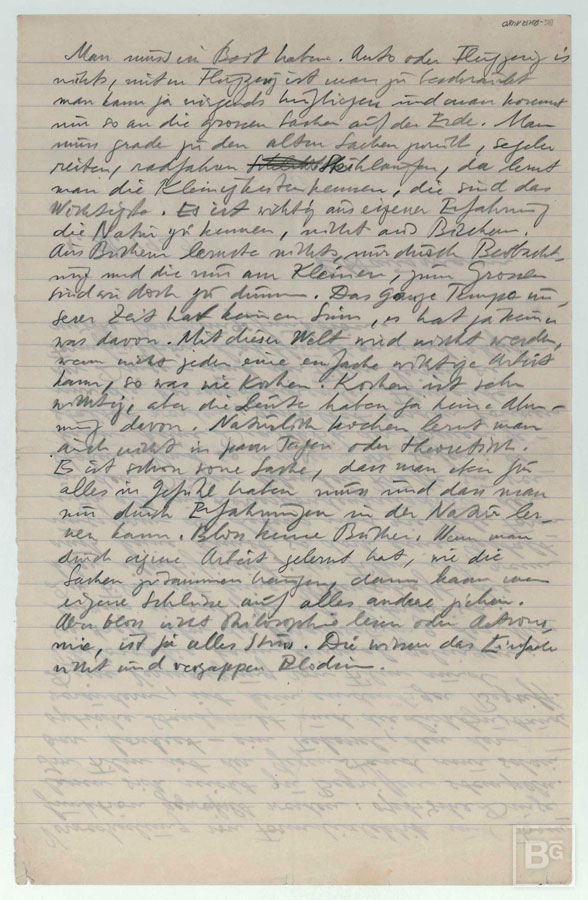 Man muss in Boot haben. Auto oder Flugzeug is
nichts, mit'm Flugzeug ist man zu beschränkt
man kann ja nirgends hinfliegen und man kommt
nie so an die grossen Sachen auf der Erde. Man
muss grade zu den alten Sachen zurück, segeln
reiten, radfahren Skihlaufen, da lernt
man die Kleinigkeiten kennen, die sind das
Wichtigste. Es ist wichtig aus eigener Erfahrung
die Natur zu kennen, nicht aus Büchern.
Aus Büchern lernste nichts, nur durch Beobacht-
ung und die nur am Kleinen, zum Grossen
sind wir doch zu dumm. Das ganze Tempo un-
serer Zeit hat keinen Sinn, es hat ja keiner
was davon. Mit dieser Welt wird nicht werden,
wenn nicht jeder eine einfache wichtige Arbeit
kann, so was wie Kochen. Kochen ist sehr
wichtig, aber die Leute haben ja keine Ahn-
ung davon. Natürlich kochen lernt man
auch nicht in paar Tagen oder theoretisch.
Es ist schon sone Sache, dass man eben für
alles in Gefühl haben muss und dass man
nur durch Erfahrungen in der Natur ler-
nen kann. Bloss keine Bücher. Wenn man
durch eigene Arbeit gelernt hat, wie die
Sachen zusammen hängen, dann kann man
eigene Schlüsse auf alles andere ziehen.
Aber bloss nicht Philosophie lesen oder Astrono-
mie, ist ja alles Stuss. Die wissen das Einfache
nicht und verzappen Blödsinn.
BG